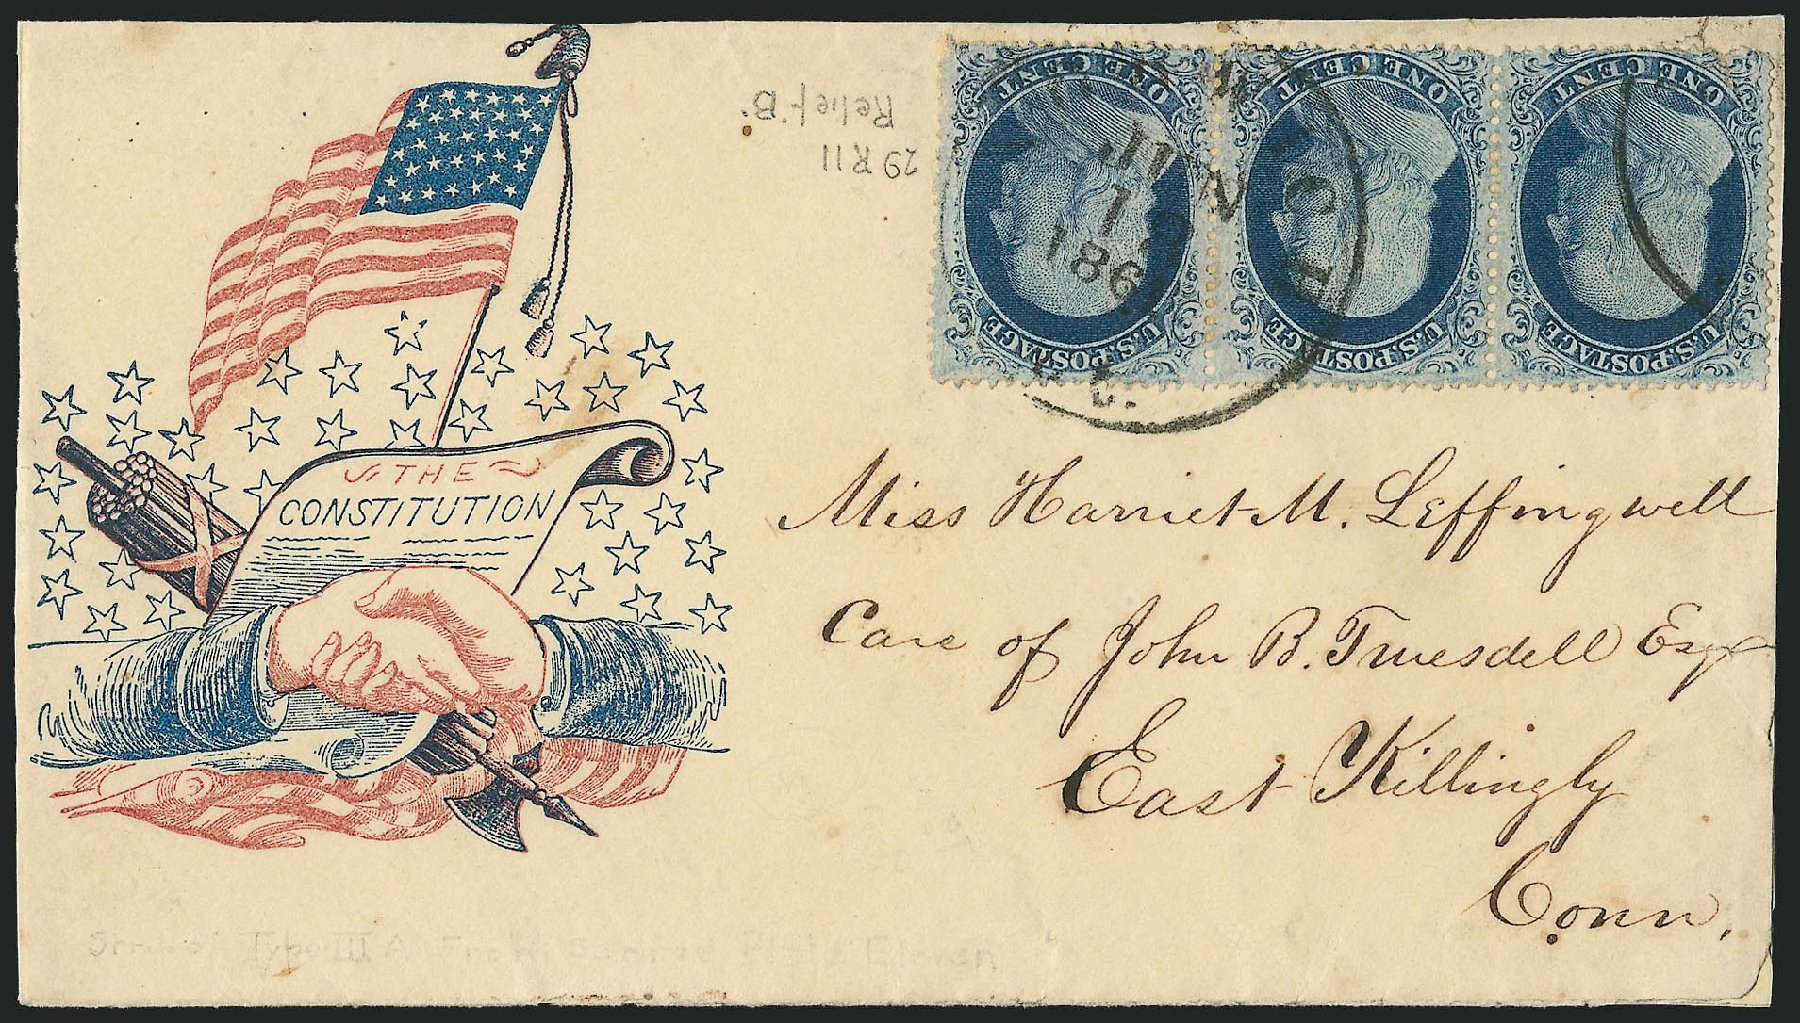 THE
CONSTITUTION
Relief "B"
29 R 11
ONE CENT
U.S. POSTAGE
ONE CENT
U.S. POSTAGE
ONE CENT
U.S. POSTAGE
JUN
186
Miss Harriet M. Leffingwell
Care of John B. Truesdell Esq
East Killingly
Conn.
Strip of Type III A From Plate Eleven